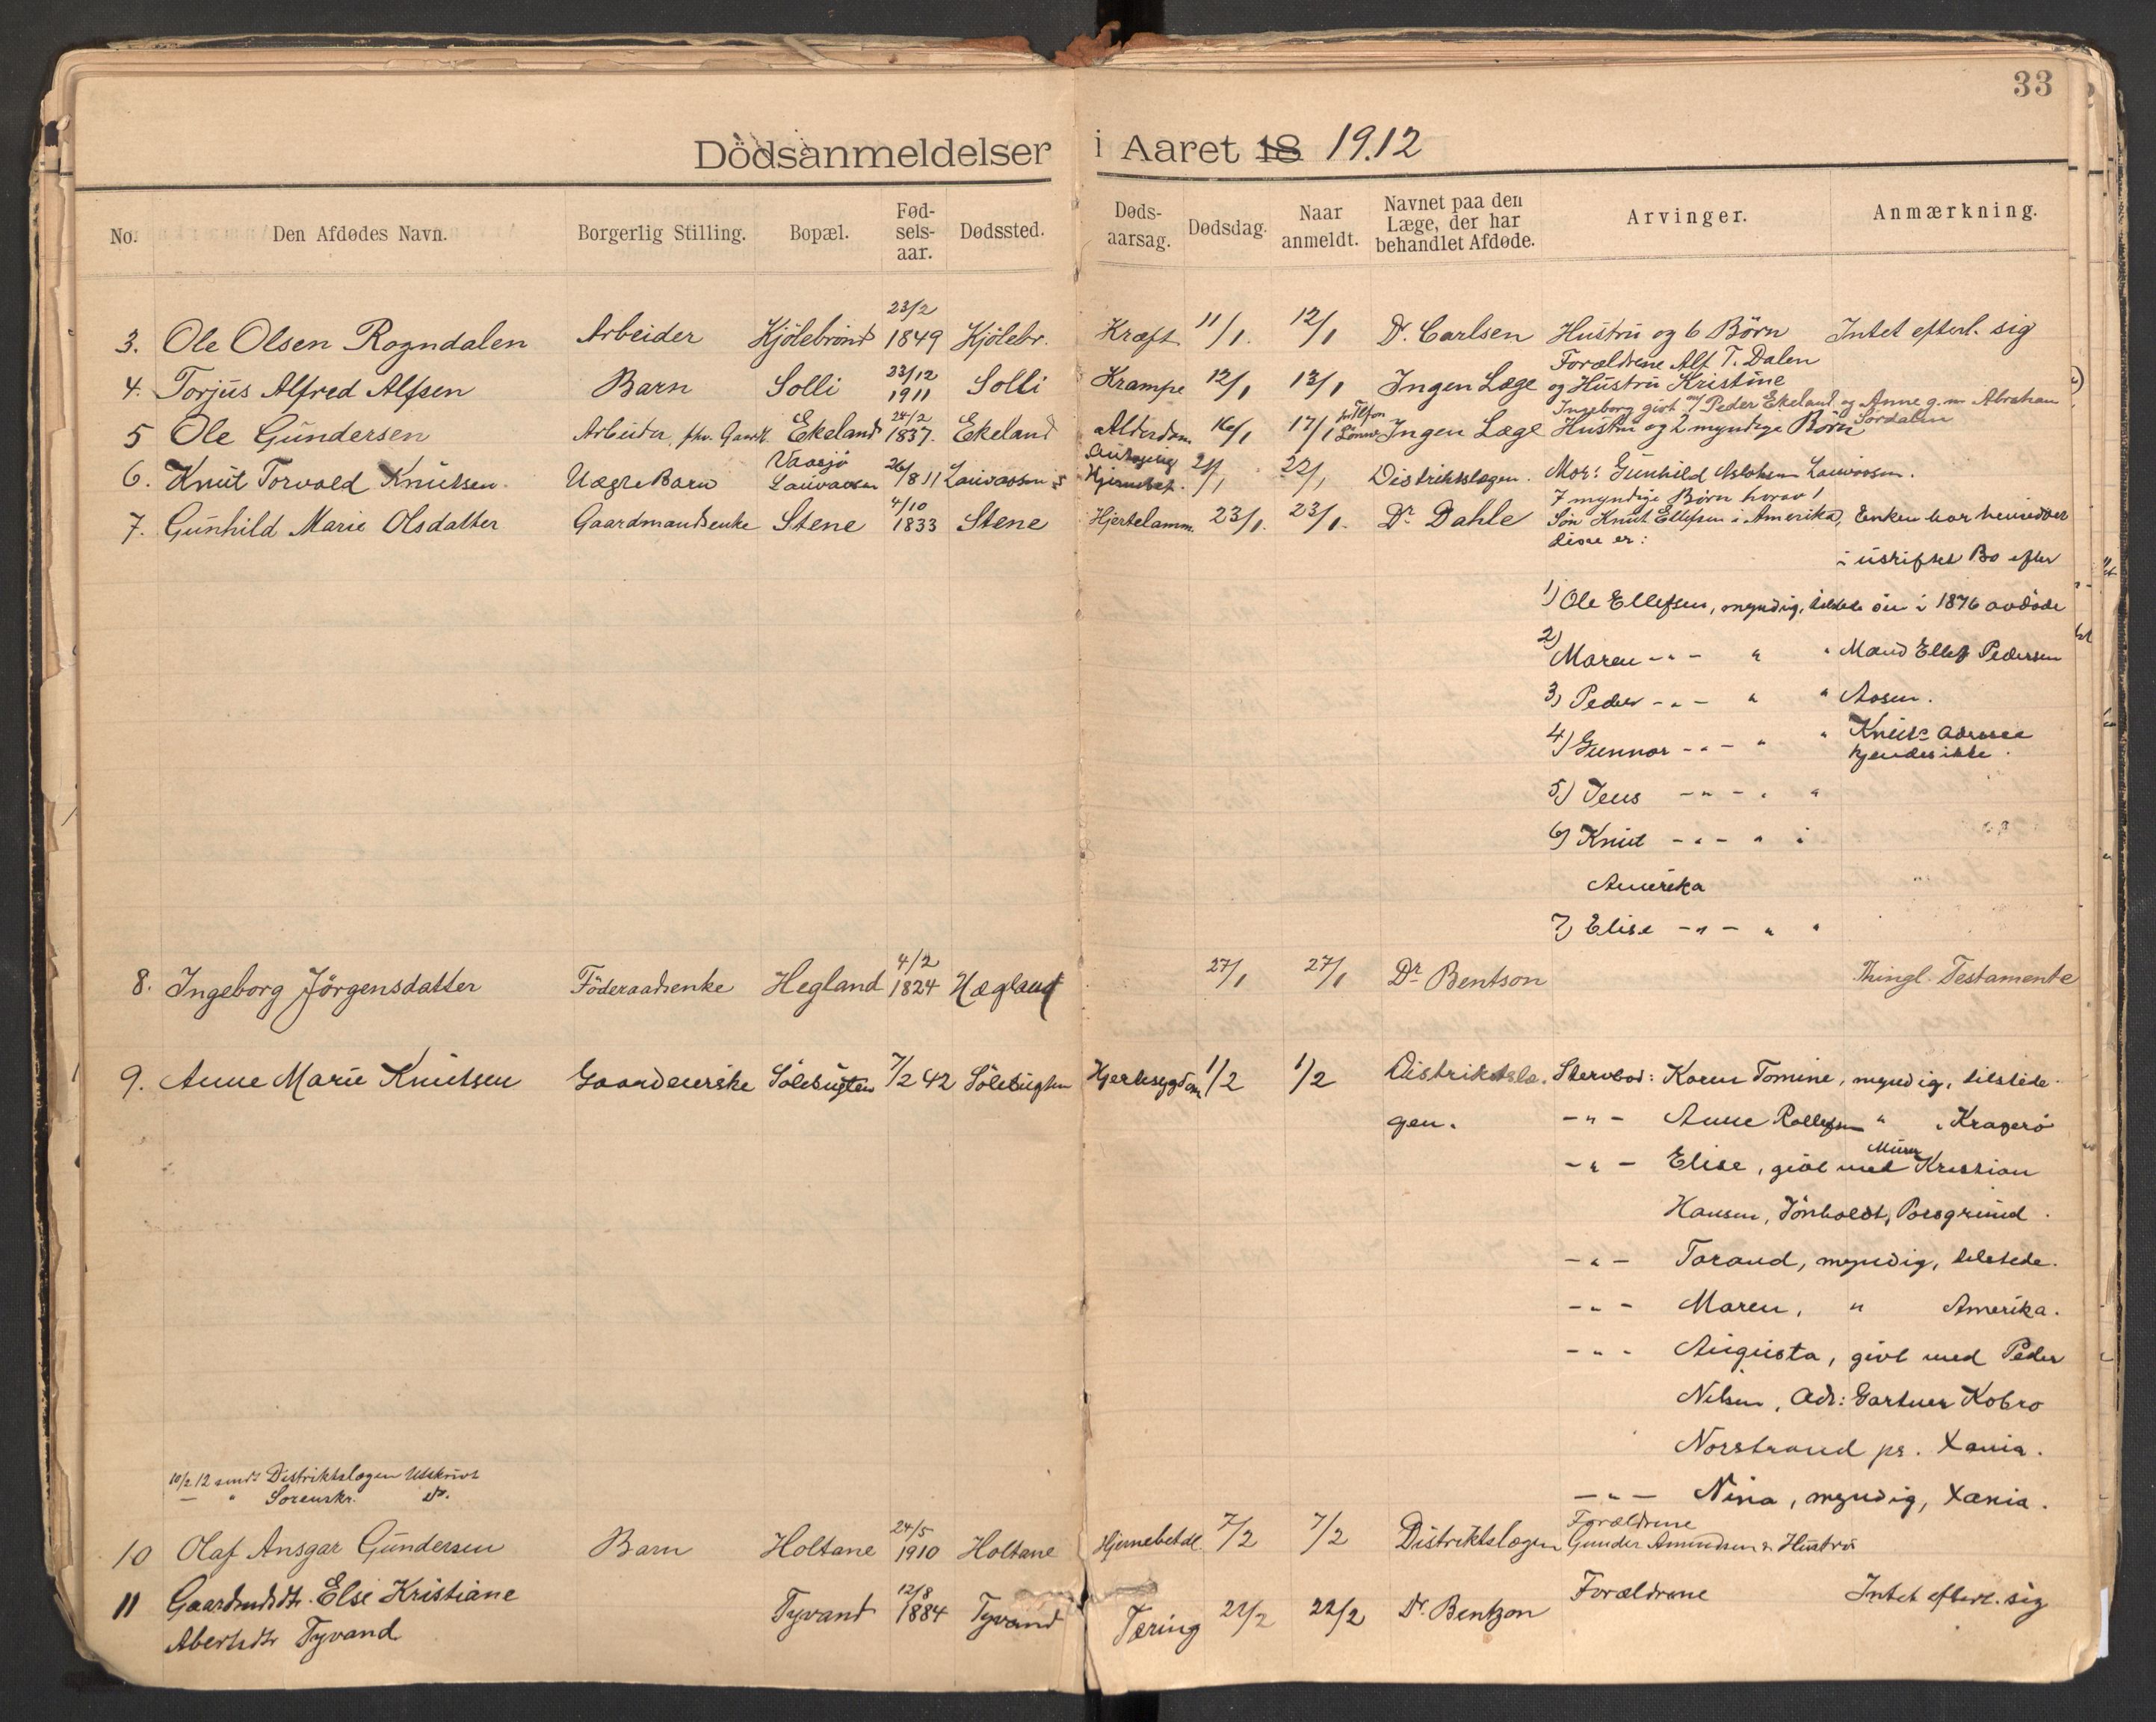 33
Dödsanmeldelser i Aaret 18 19.12
No. Den Afdødes Navn. Borgerlig Stilling. Bopæl. Fød-sels-aar. Dødssted. Døds-aarsag. Dødsdag. Naar anmeldt. Navnet paa den Læge, der har behandlet Afdøde. Arvinger. Anmærkning.
3. Ole Olsen Rogndalen Arbeider Kjölebrönd 23/2 1849 Kjölebr. Kræft 11/1. 12/1 Dr. Carlsen Hustru og 6 Börn Intet efterl. sig
4. Torjus Alfred Alfsen Barn Solli 23/12 1911 Solli Krampe 12/1 13/1 Ingen Læge Forældrene Alf T. Dalen
og Hustru Kristine
Ingeborg givt m/ Peder Ekeland og Anne g. m. Abraham
Sördalen
5 Ole Gundersen Arbeider, fhv. Gaardt. Ekeland 24/2 1837. Ekeland Alderdom 16/1 17/1 Ingen Læge Hustru og 2 myndige Börn
6. Knut Torvald Knutsen. Uægte Barn Vaasjö Lauvaasen 26/8 11 Lauvaasen 21/1 22/1 Distriktslægen. Mor: Gunhild Lauvaasen.
7. Gunhild Marie Olsdatter Gaardmandsenke Stene 4/10 1833 Stene Hjertelamm. 23/1. 23/1. Dr Dahle 7 myndige Börn horav 1
Sön Knut Ellefsen i Amerika, Enken har hensiddet
disse er:
i uskiftet Bo efter
1) Ole Ellefsen, myndig, i 1876 avdöde
2) Maren -"- " " Mand Ellef Pedersen
3) Peder -"- " " Aasen.
4) Gunnar -"- " " Knuts adresse
kjendes ikke.
5) Jens -"- " "
6) Knut -"- " i
Amerika
7) Elise -"- " "
8. Ingeborg Jörgensdatter Föderaadsenke Hegland 4/2 1824 Hægland 27/1 27/1 Dr Bentson Thingl. Testamente
9. Anne Marie Knutsen Gaardeierske Sölebugten 7/2 42 Sölebugten Hjertesygdom 1/2 1/2 Distriktslæ- Stervbod: Karen Tomine, myndig, tilstede.
gen. -"- Anne Rollefsen " " Kragerö
-"- Elise, givt med Murer Kristian
Hansen, Porsgrund.
-"- Torand, myndig, tilstede.
-"- Maren, " Amerika.
-"- Augusta, givt med Peder
Nilsen, Adr: Gartner Kobro
Norstrand pr. Xania.
10/2 12 sendt Distriktslægen Utskrivt
— " Sorenskr. do.
-"- Nina, myndig, Xania.
10 Olaf Ansgar Gundersen Barn Holtane 24/5 1910 Holtane Hjernebetdl. 7/2 7/2 Distriktslægen Forældrene
Gunder Amundsen & Hustru
11 Gaardmdsdtr. Else Kristiane Tyvand 12/8 1884 Tyvand Tæring 22/2 22/2 Dr. Bentzon Forældrene Intet efterl. sig
Tyvand